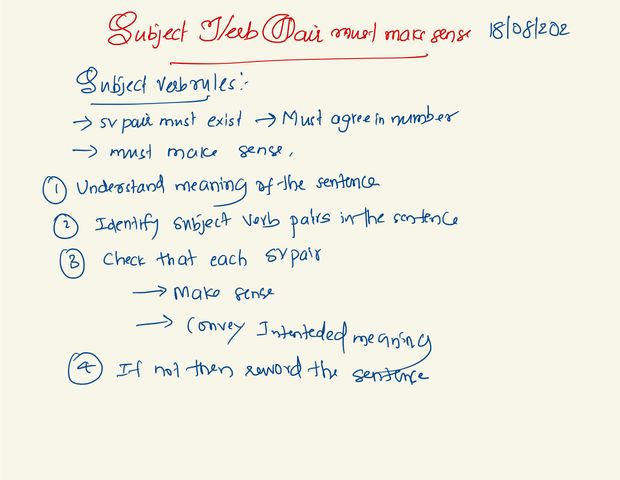 Subject Verb Pair must make sense 18/08/202
Subject verb rules:-
→ SV pair must exist → Must agree in number
→ must make sense.
① Understand meaning of the sentence
② Identify subject verb pairs in the sentence
③ Check that each SV pair
→ Make sense
→ Convey Intenteded meaning
④ If not then reword the sentence